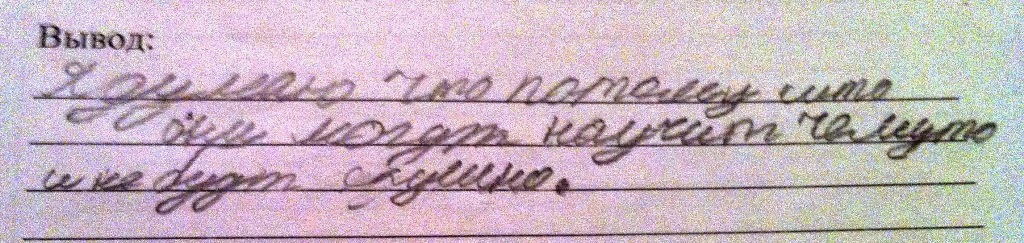 Вывод:
Я думаю что потому што
они могут научит чемуто
и не будт скучно.